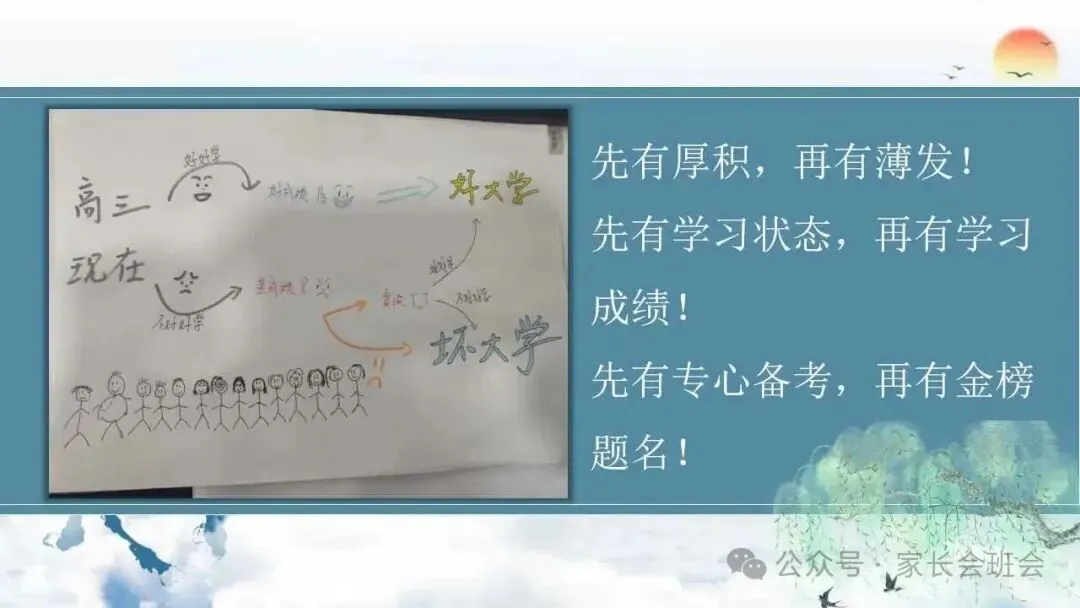 好好学
高三
好成绩
好大学
现在
差成绩
复读
不好好学
不好好学
坏大学
先有厚积，再有薄发！
先有学习状态，再有学习
成绩！
先有专心备考，再有金榜
题名！
公众号·家长会班会